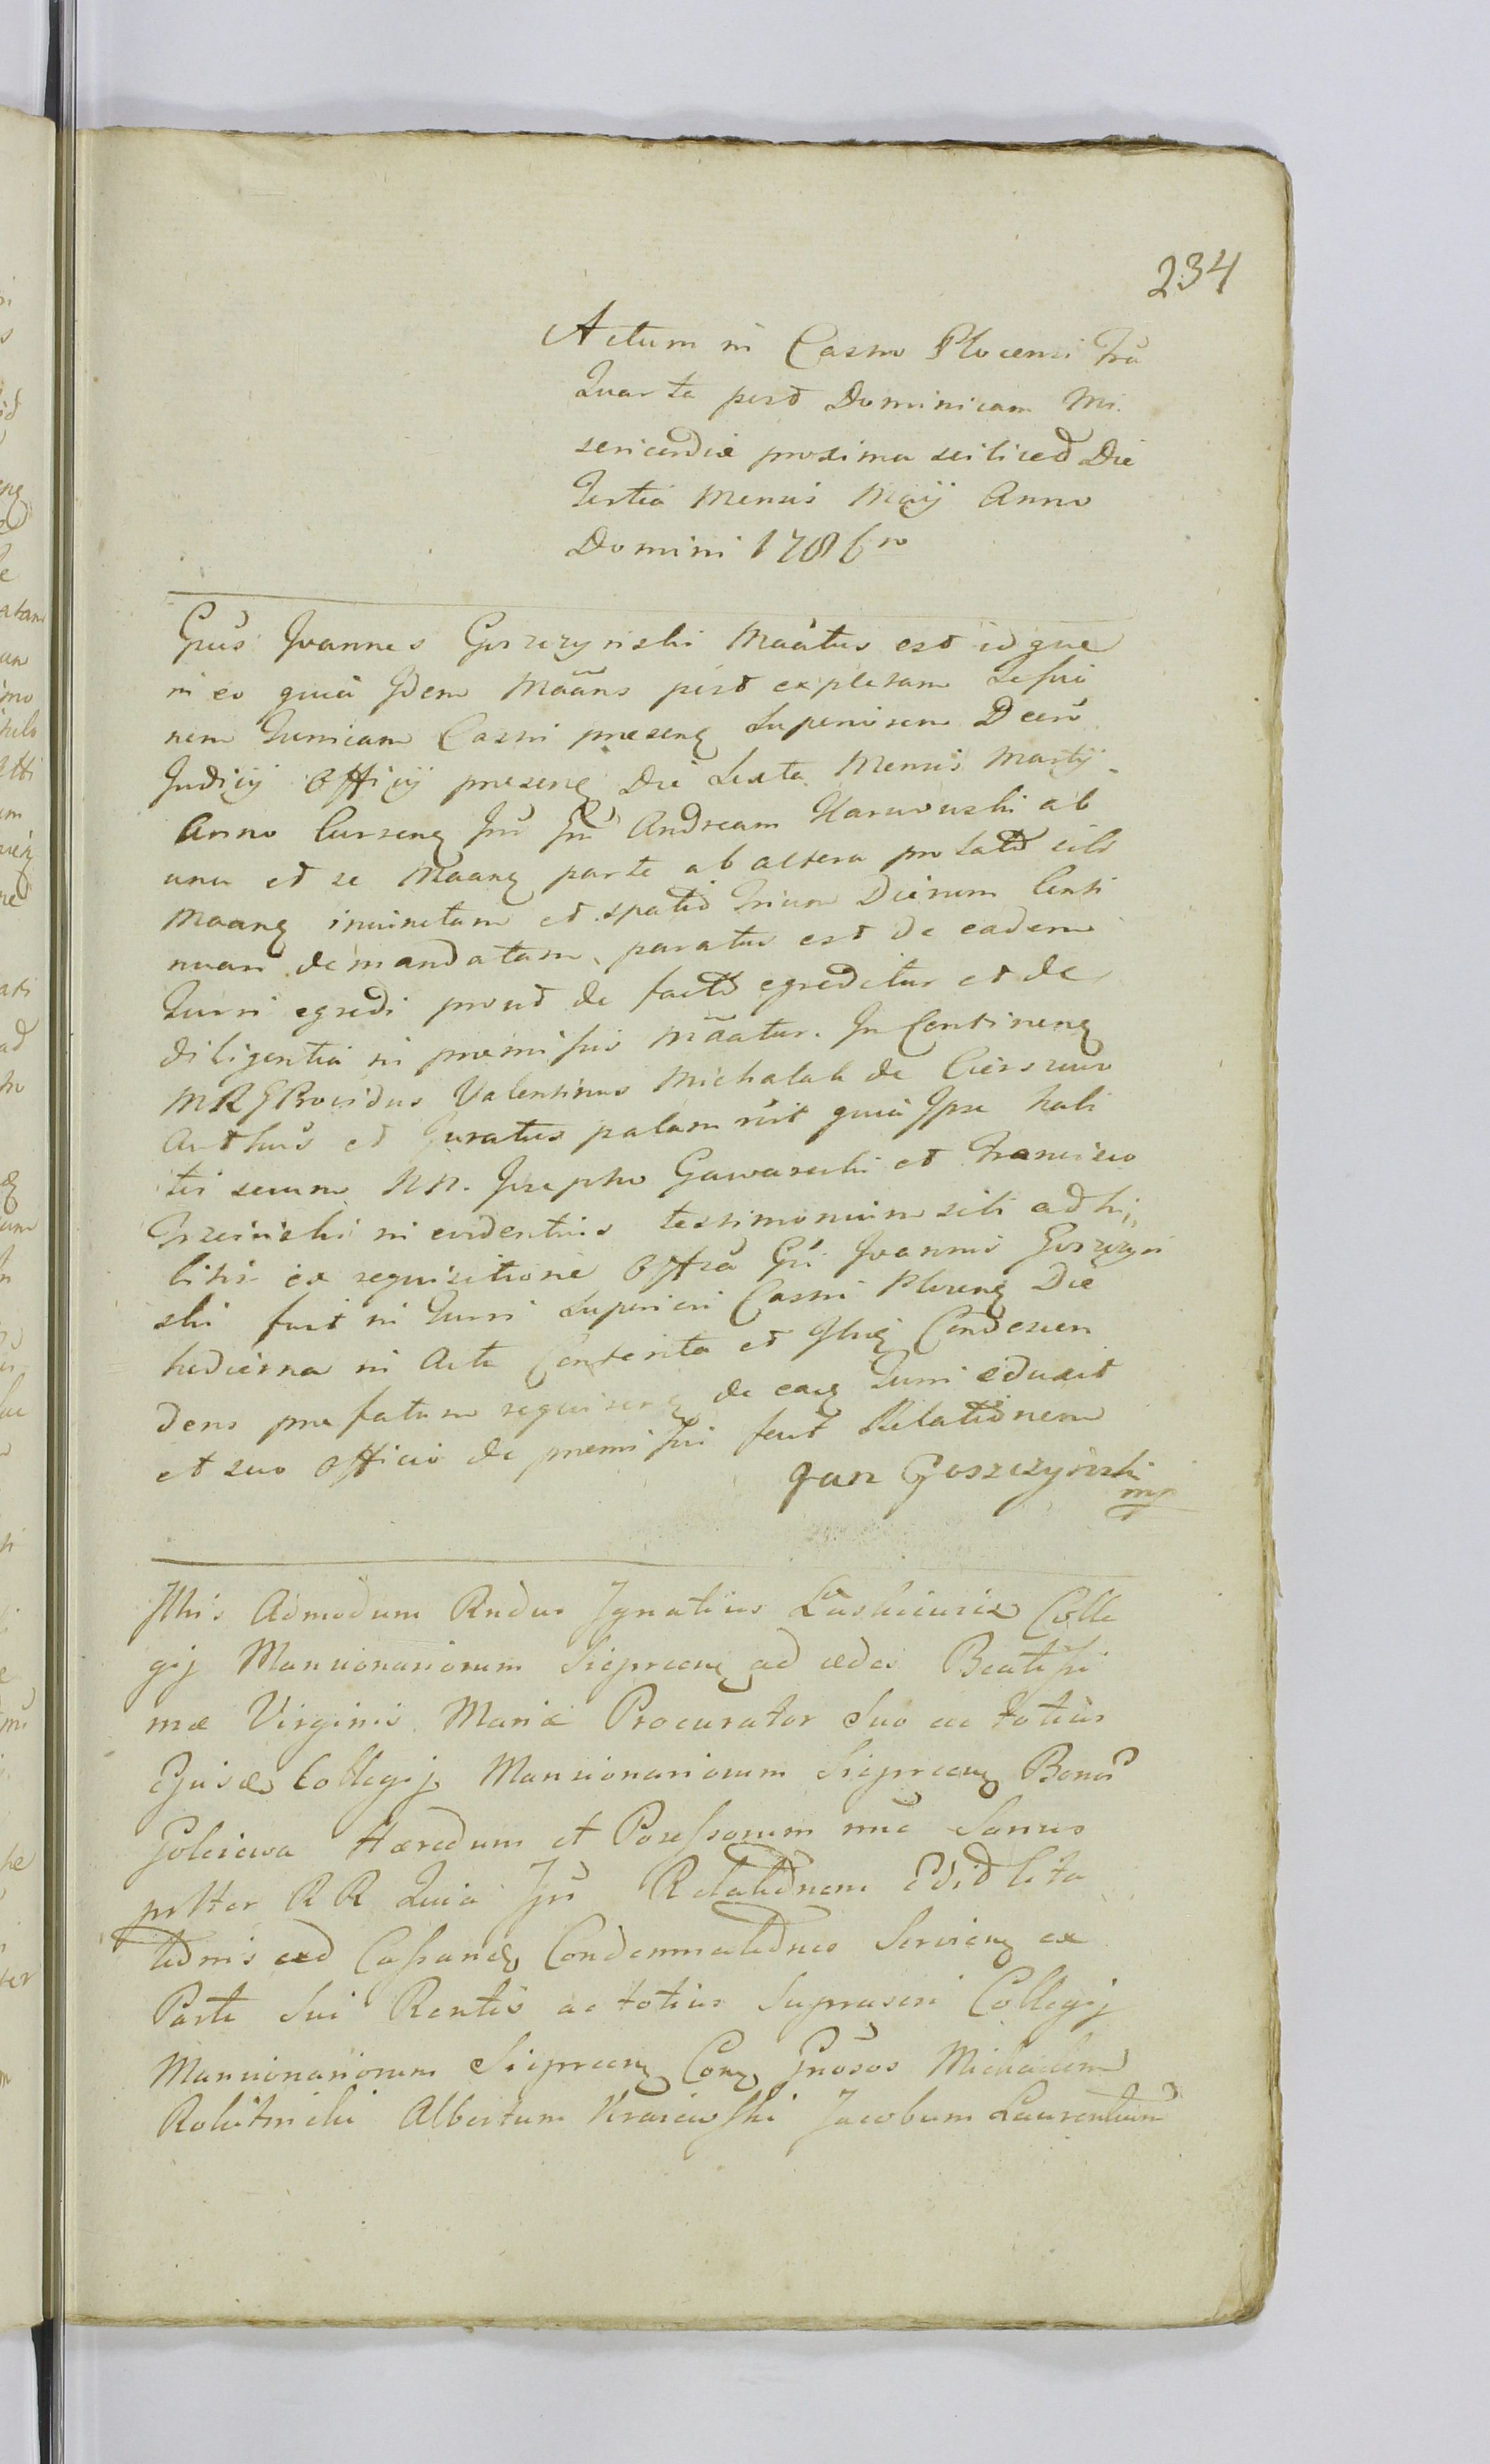 234
Actum in Castro Plocensi Fria
Quarta post Dominicam Mi
sericordiæ proxima scilicet Die
Tertia Mensis Maij Anno
Domini 1786to
Gsus Joannes Goszczynski Maãtus est idque
in eo quia Idem Maãns post expletam Sessio
nem Turricam Castri præseng Superiorem Decrõ
Judicij Officij preseng Die Sexta Mensis Martij
Anno Curreng Inr Andream Narwoyski ab
una et se Maang parte ab altera prolato sibi
Maang iniunctam et spatio Trium Dierum Conti
nuari demandatam, paratus est de eadem
Turri egredi prout de facto egreditur et de
diligentia in premissis Mãatur. In Contineng
MRG Providus Valentinus Michalak de Cierszewo
Authus et Juratus palam rñit quia Ipse habi
tis secum NN. Josepho Gawarecki et Francisco
Trzcinski in evidentius testimonium sibi adhi,,
bitis ex requisitione Offsa Gsi Joannis Goszczyn
ski fuit in Turri Superiori Castri Ploceng Die
hodierna in Actu Contenta et Ibiq Condescen
dens prefatum requireng de eaq Turri eduxit
et suo Officio de premissis fecit Relationem
Jan Goszczyński
mp
Illris Admodum Rndus Ignatius Laskiewicz Colle
gij Mansionariorum Sieprceng ad ædes Beatissi
mæ Virginis Mariæ Procurator Suo ac totius
Ejusd Collegij Mansionariorum Sieprceng Bonor
Goleiewa Hæredum et Possessorum nñe Sanus
prtter RR Quia Ipse Relationem Edidit Cita
tionis ad Cassandg Condemnationes Servieng ex
Parte Sui Rentis ac totius Suprascri Collegij
Mansionariorum Sieprceng Cong Gnosos Michaelem
Rokitnicki Albertum Krajewski Jacobum Laurentium